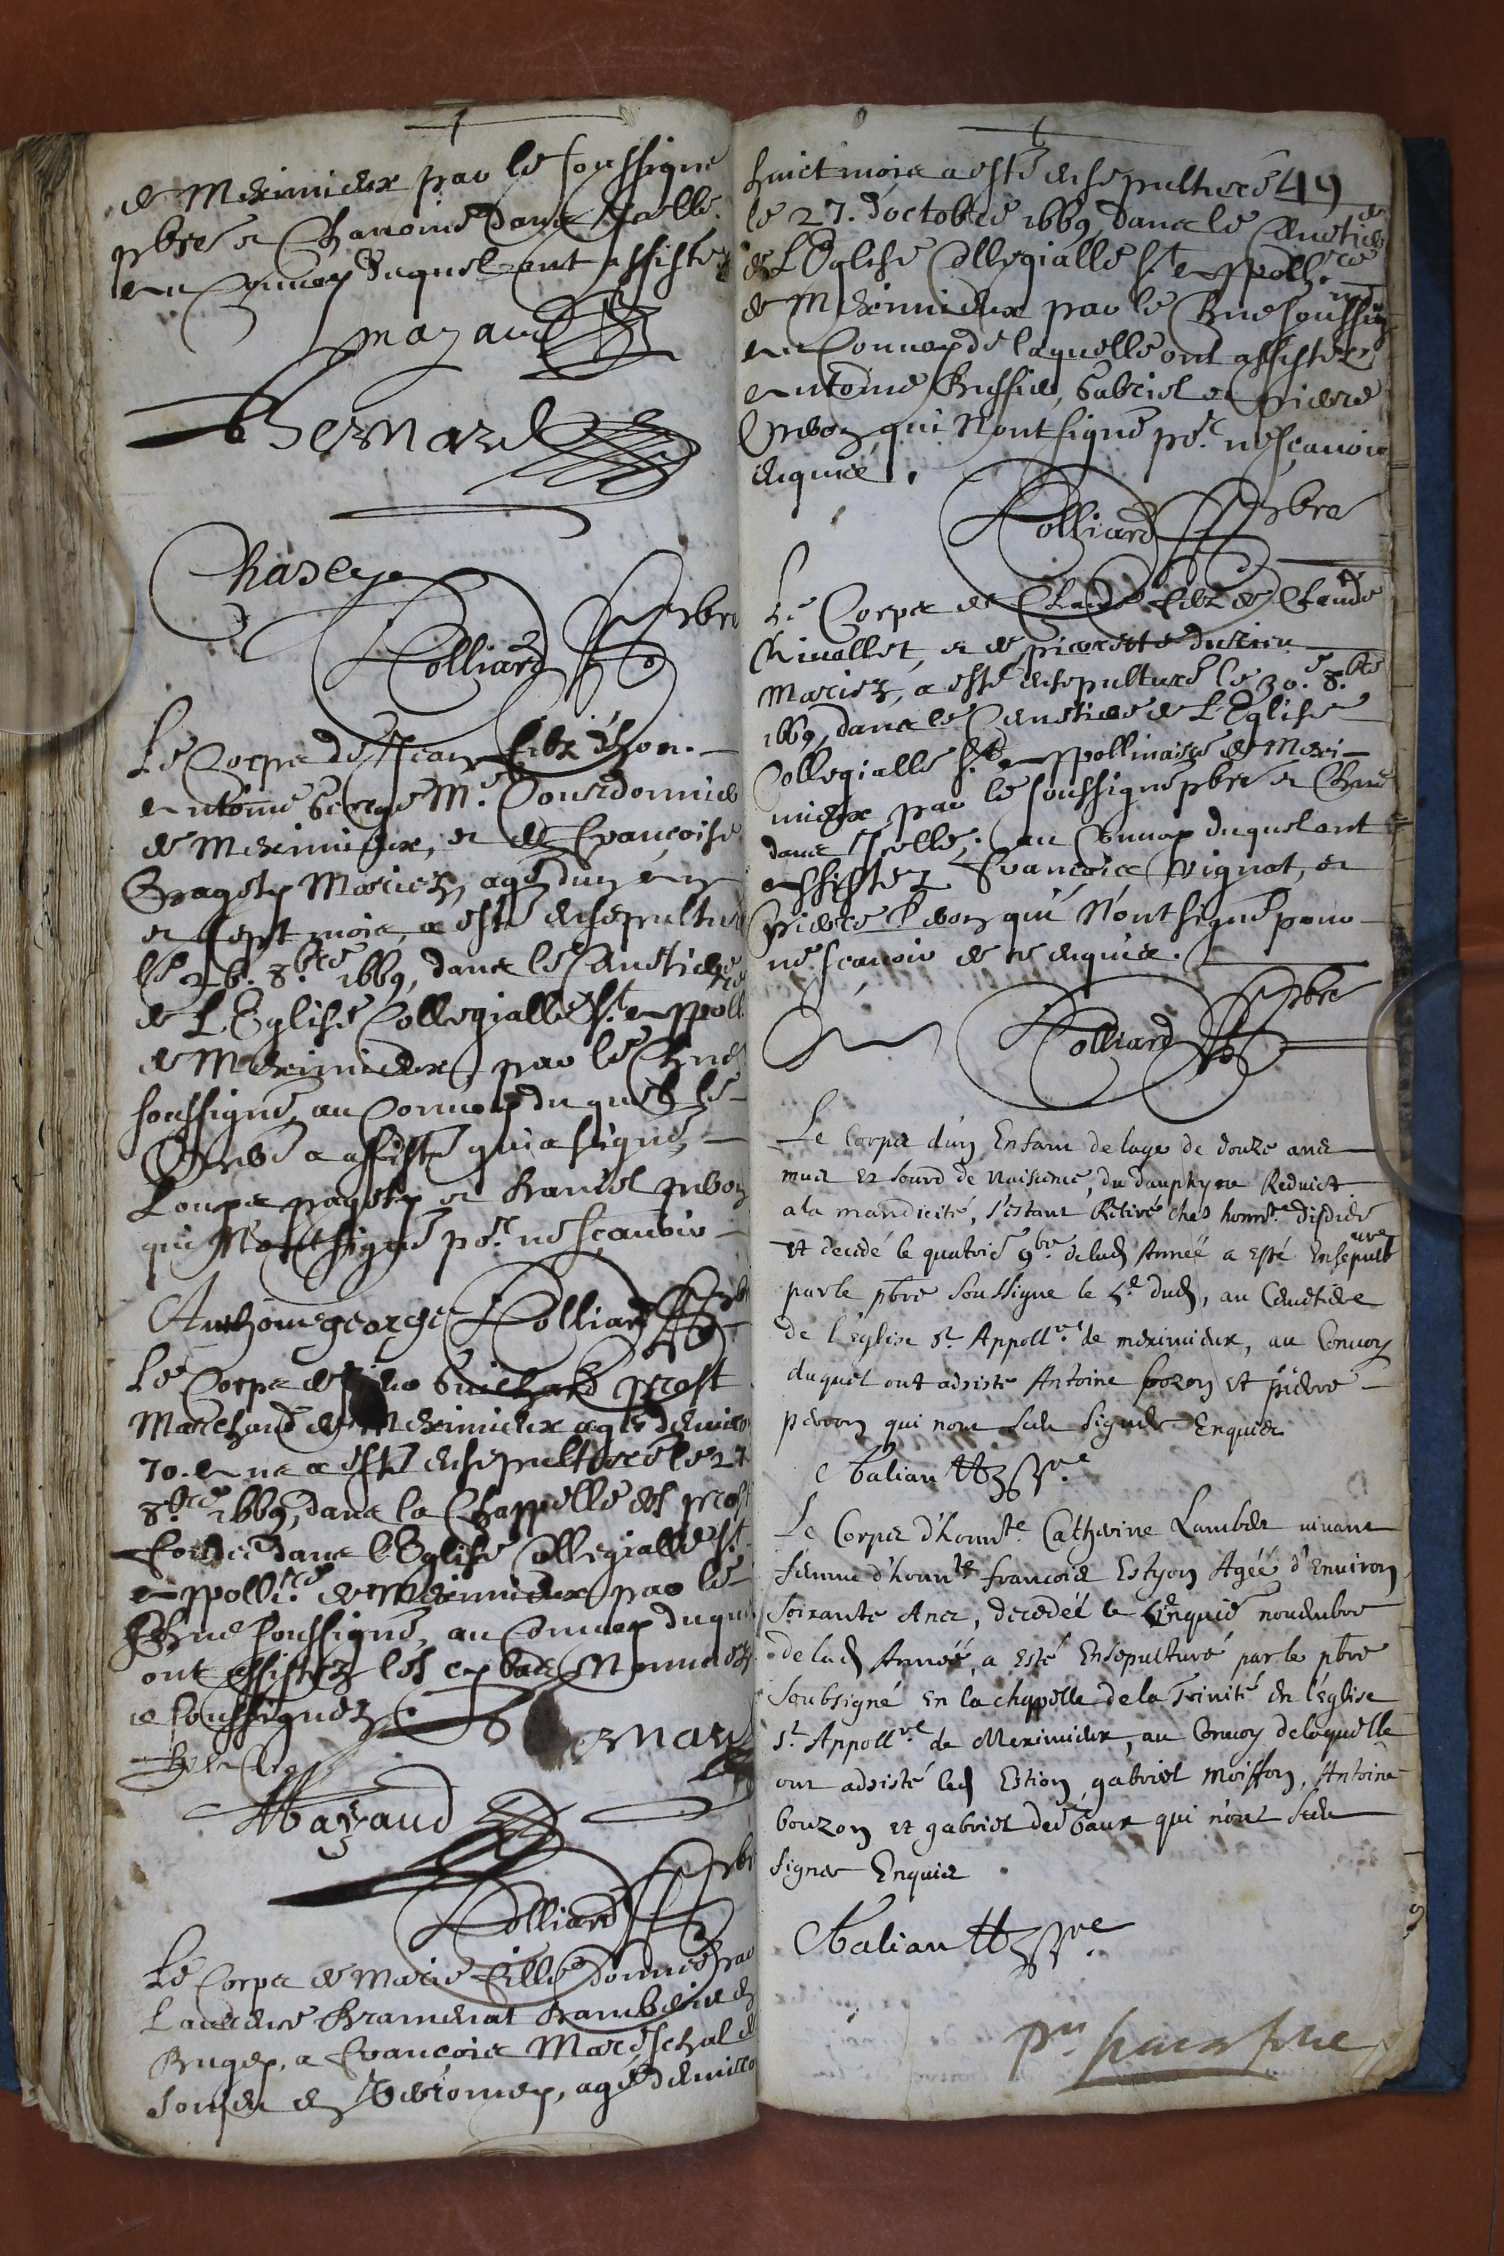 de Meximieux par le soussigné
pbre et Chanoine dans Icelle.
au Convoy duquel ont assistez
mazaud
Bernard
Chasey
Colliard pbre
Le Corps de Jean filz d'hon.
Antoine George Me. Courdonnier
de Meximieux, et de Françoise
Pagety Mariez, agé dun an
et sept mois, a esté ensepulturé
le 26. 8.bre 1669, dans le Cimetiere
de L'Eglise Collegialle St. Appoll.re
de Meximieux, par le Chne
soussigné, au Convoy duquel le
Pere a assisté qui a signé,
Loups pagety et
qui N'ont signé pr. ne scauoir
Anthoine george Colliard pbre
Le Corps de Guichard prost
Marchand de Meximieux agé denviron
70. ans a esté ensepulturé le 27
8.bre 1669, dans la Chappelle des prost
fondée dans L'Eglise Collegialle St.
Appoll.re de Meximieux par le
Chne soussigné, au Convoy duquel
ont assistez les cy bas Nommez
et soussignez Bernard
Mazaud
Colliard pbre
Le Corps de Marie fille donnée par
Laurence Bramenat
Bugey, a François Mareschal
en Veromey, agée denviron
huict mois a esté ensepulturé 49
le 27. d'octobre 1669, dans le Cimetiere
de L'Eglise Collegialle St. Appoll.re
de Meximieux par le Chne soussigné
au Convoy de laquelle ont assistez
Antoine Bussier, Gabriel et pierre
qui N'ont signé pr. ne sçauoir
enquis.
Colliard pbre
Le Corps de Claude filz de Claude
Chivallet, et de pierrette durieu
Mariez, a esté ensepulturé le 30.e 8.bre
1669, dans le Cimetiere de L'Eglise
Collegialle St. Appollinaire de Mexi-
mieux par le soussigné pbre et Chne
dans Icelle; au Convoy duquel ont
assistez François Vignat, et
pierre qui N'ont signé pour
ne sçauoir de ce enquis.
Colliard pbre
Le Corps d'un Enfant de lage de douze ans
muet et sourd de Naissence, du dauphyné Reduict
a la mandicité, s'estant Retiré ches honnte. disdier
et decedé le quatrie 9bre. de lad Année a esté Ensepulturé
par le pbre Soussigne le 5e dud, au Cimetiere
de l'Eglise St. Appollre. de meximieux, au Convoy
duquel ont adsisté Antoine bozon et pierre
peroon qui nont sceu signer Enquis
Le Corps d'honnte Catherine Lambert vivant
femme d'honnte françois Estyon Agée d'Environ
Soixante Ans, decedée le Cinquie novembre
de lad Année, a esté Ensepulturé par le pbre
soubsigné En la chappelle de la Trinité En l'eglise
St. Appollre de Meximieux, au Convoy de laquelle
ont adsisté led Estion, gabriel moisson, Antoine
bouzon et gabriel des vaux qui n'ont sceu
signer Enquis